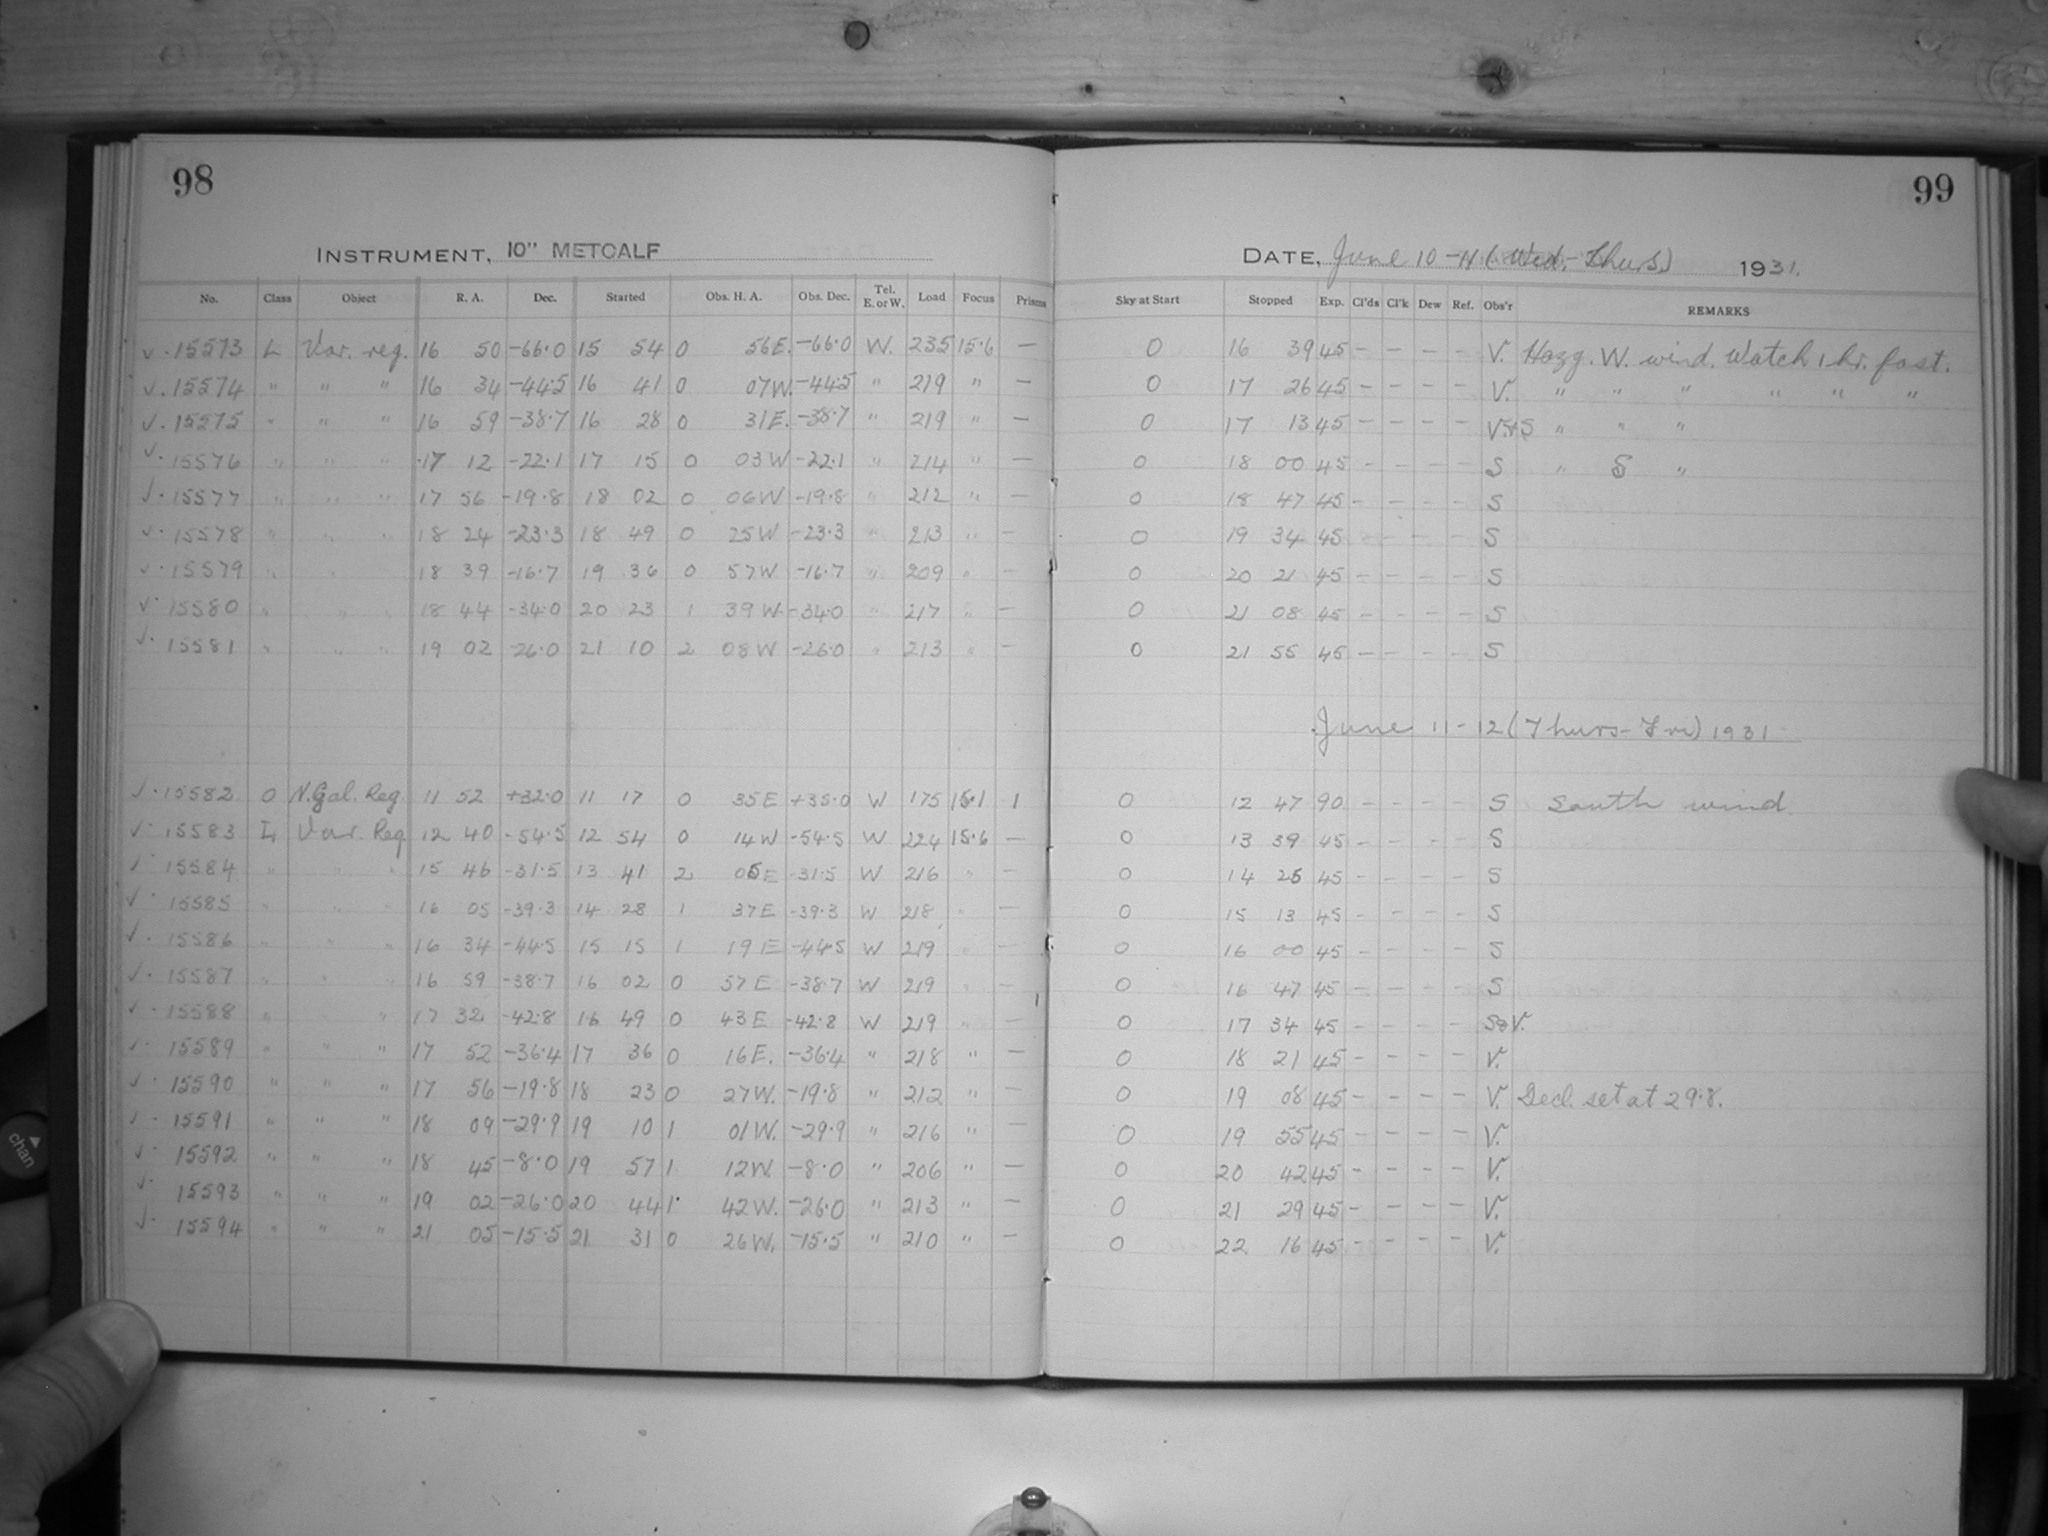 98
99
INSTRUMENT, 10" METCALF
DATE, June 10-11 (Wed.-Thurs.) 1931.
No. Class Object R. A. Dec. Started Obs. H. A. Obs. Dec. Tel. E. or W. Load Focus Prisms Sky at Start Stopped Exp. Cl'ds Cl'k Dew Ref. Obs'r REMARKS
✓ · 15573 L Var. reg. 16 50 -66.0 15 54 0 56E. -66.0 W. 235 15.6 — 0 16 39 45 - - - - V. Hazy. W. wind. Watch 1 hr. fast.
✓ · 15574 " " " 16 34 -44.5 16 41 0 07W. -44.5 " 219 " — 0 17 26 45 - - - - V. " " " " " "
✓ · 15575 " " " 16 59 -38.7 16 28 0 31E. -38.7 " 219 " — 0 17 13 45 - - - - V.+S " " "
✓ · 15576 " " " 17 12 -22.1 17 15 0 03W -22.1 " 214 " — 0 18 00 45 - - - - S " S "
✓ · 15577 " " " 17 56 -19.8 18 02 0 06W -19.8 " 212 " — 0 18 47 45 - - - - S
✓ · 15578 " " " 18 24 -23.3 18 49 0 25W -23.3 " 213 " — 0 19 34 45 - - - - S
✓ · 15579 " " " 18 39 -16.7 19 36 0 57W -16.7 " 209 " — 0 20 21 45 - - - - S
✓ · 15580 " " " 18 44 -34.0 20 23 1 39W -34.0 " 217 " — 0 21 08 45 - - - - S
✓ · 15581 " " " 19 02 -26.0 21 10 2 08W -26.0 " 213 " — 0 21 55 45 - - - - S
June 11-12 (Thurs-Fri) 1931
✓ · 15582 O N.Gal. Reg. 11 52 +32.0 11 17 0 35E +35.0 W 175 15.1 1 0 12 47 90 - - - - S South wind.
✓ · 15583 L Var. Reg 12 40 -54.5 12 54 0 14W -54.5 W 224 15.6 — 0 13 39 45 - - - - S
✓ · 15584 " " " 15 46 -31.5 13 41 2 05E -31.5 W 216 " — 0 14 26 45 - - - - S
✓ · 15585 " " " 16 05 -39.3 14 28 1 37E -39.3 W 218 " — 0 15 13 45 - - - - S
✓ · 15586 " " " 16 34 -44.5 15 15 1 19E -44.5 W 219 " — 0 16 00 45 - - - - S
✓ · 15587 " " " 16 59 -38.7 16 02 0 57E -38.7 W 219 " — 0 16 47 45 - - - - S
✓ · 15588 " " " 17 32 -42.8 16 49 0 43E -42.8 W 219 " — 0 17 34 45 - - - - S&V.
✓ · 15589 " " " 17 52 -36.4 17 36 0 16E. -36.4 " 218 " — 0 18 21 45 - - - - V.
✓ · 15590 " " " 17 56 -19.8 18 23 0 27W. -19.8 " 212 " — 0 19 08 45 - - - - V. Decl. set at 29.8.
✓ · 15591 " " " 18 09 -29.9 19 10 1 01W. -29.9 " 216 " — 0 19 55 45 - - - - V.
✓ · 15592 " " " 18 45 -8.0 19 57 1 12W. -8.0 " 206 " — 0 20 42 45 - - - - V.
✓ · 15593 " " " 19 02 -26.0 20 44 1 42W. -26.0 " 213 " — 0 21 29 45 - - - - V.
✓ · 15594 " " " 21 05 -15.5 21 31 0 26W. -15.5 " 210 " — 0 22 16 45 - - - - V.
chan